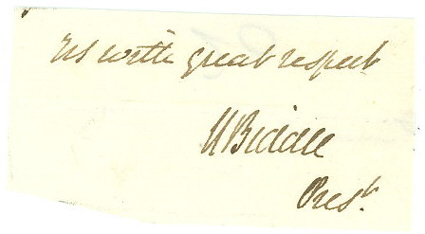 Yrs with great respect
N Biddle
Prest.